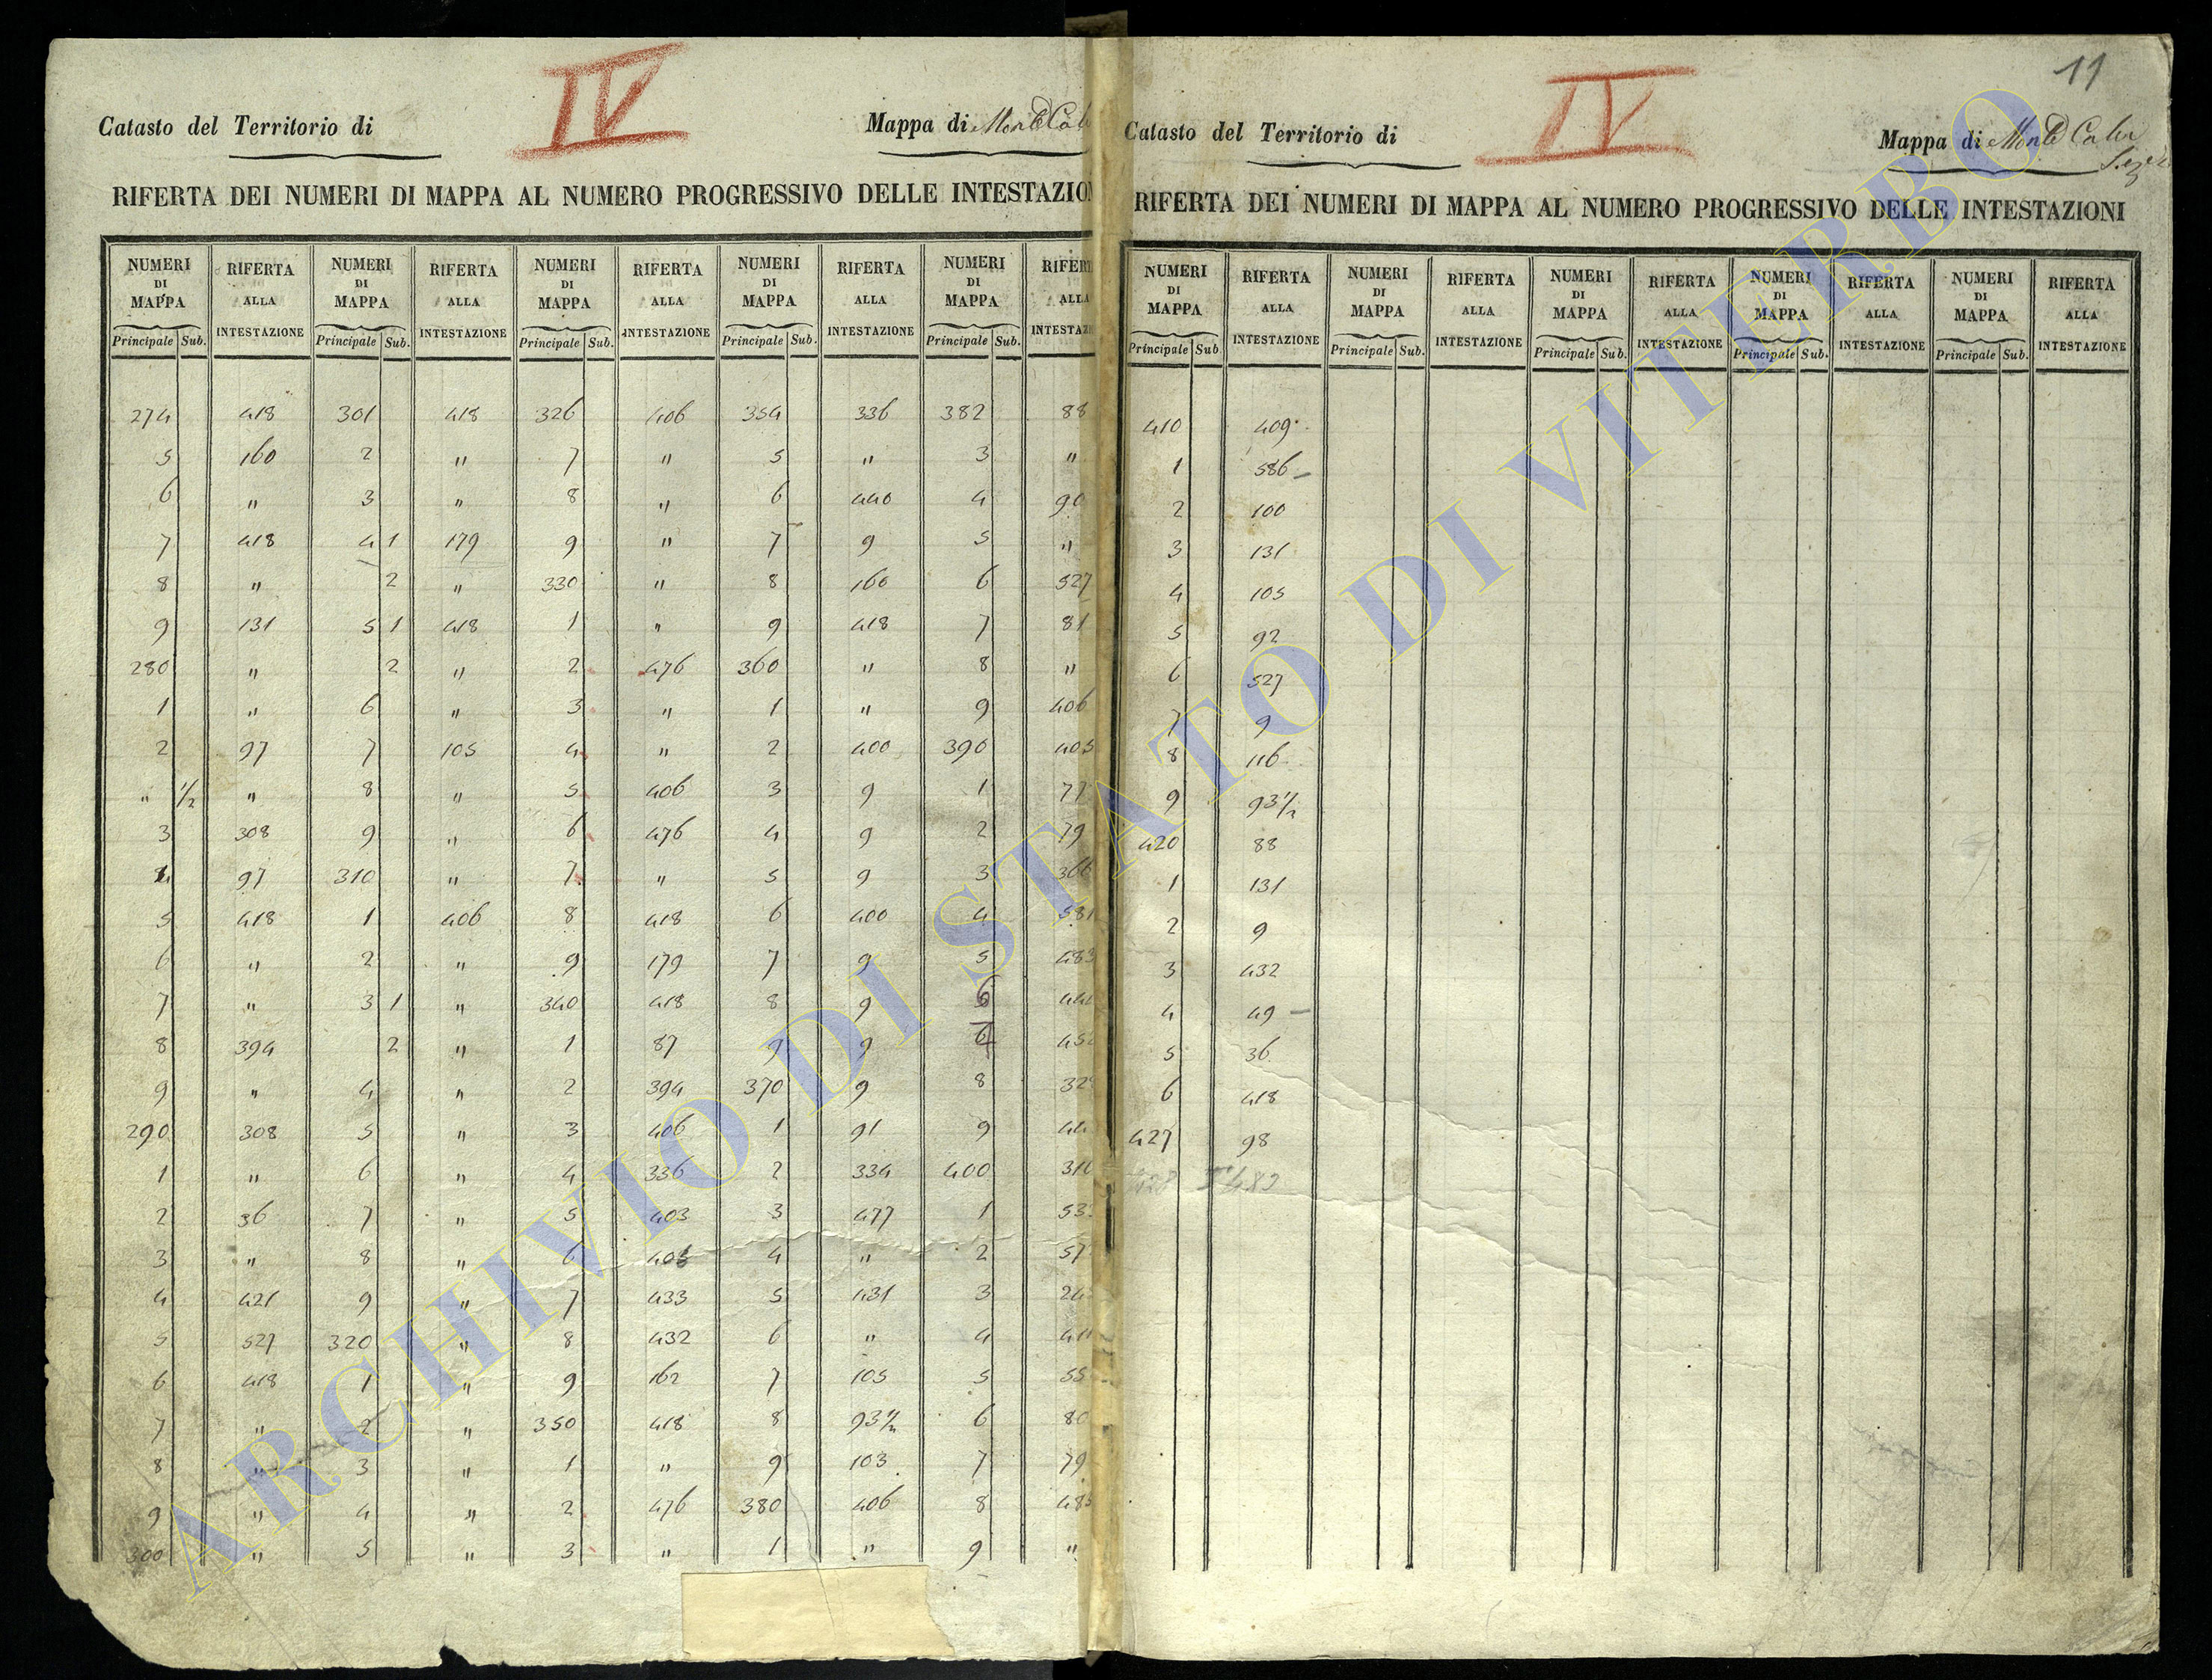 IV
Catasto del Territorio di
Mappa di
RIFERTA DEI NUMERI DI MAPPA AL NUMERO PROGRESSIVO DELLE INTESTAZION
NUMERI DI MAPPA RIFERTA ALLA INTESTAZIONE NUMERI DI MAPPA RIFERTA ALLA INTESTAZIONE NUMERI DI MAPPA RIFERTA ALLA INTESTAZIONE NUMERI DI MAPPA RIFERTA ALLA INTESTAZIONE NUMERI DI MAPPA RIFERT ALLA
Principale Sub. Principale Sub. Principale Sub. Principale Sub. Principale Sub.
274 418 301 418 326 406 354 336 382 88
5 160 2 " 7 " 5 " 3 "
6 " 3 " 8 " 6 440 4 90
7 418 4 1 179 9 " 7 9 5 "
8 " 2 " 330 " 8 160 6 527
9 131 5 1 418 1 " 9 418 7 81
280 " 2 " 2 476 360 " 8 "
1 " 6 " 3 " 1 " 9 406
2 97 7 105 4 " 2 400 390 405
" 1/2 " 8 " 5 406 3 9 1 77
3 308 9 " 6 476 4 9 2 79
4 97 310 " 7 " 5 9 3 366
5 418 1 406 8 418 6 400 4 581
6 " 2 " 9 179 7 9 5 483
7 " 3 1 " 340 418 8 9 6
8 394 2 " 1 87 9 9
9 " 4 " 2 394 370 9 8
290 308 5 " 3 406 1 91 9
1 " 6 " 4 336 2 334 400
2 36 7 " 5 403 3 477 1
3 " 8 " 6 4 " 2
4 421 9 " 7 433 5 431 3
5 527 320 " 8 432 6 " 4
6 418 1 " 9 162 7 105 5
7 " 2 " 350 418 8 93 1/2 6 80
8 " 3 " 1 " 9 103 7 79
9 " 4 " 2 476 380 406 8
300 " 5 " 3 " 1 " 9 "
11
IV
Catasto del Territorio di
Mappa di
RIFERTA DEI NUMERI DI MAPPA AL NUMERO PROGRESSIVO DELLE INTESTAZIONI
NUMERI DI MAPPA RIFERTA ALLA INTESTAZIONE NUMERI DI MAPPA RIFERTA ALLA INTESTAZIONE NUMERI DI MAPPA RIFERTA ALLA INTESTAZIONE NUMERI DI MAPPA RIFERTA ALLA INTESTAZIONE NUMERI DI MAPPA RIFERTA ALLA INTESTAZIONE
Principale Sub. Principale Sub. Principale Sub. Principale Sub. Principale Sub.
410 409
1 586
2 100
3 131
4 105
5 92
6 527
7 9
8 116
9 93 1/2
420 88
1 131
2 9
3 432
4 49
5 36
6 418
427 98
ARCHIVIO DI STATO DI VITERBO